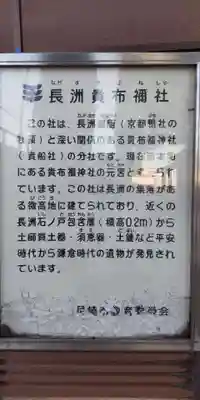 長洲貴布禰社
この社は、長洲御厨(京都鴨社の
社領)と深い関係のある貴布禰神社
(貴船社)の分社です。現在
にある貴布禰神社の元宮と
ています。この社は長洲の集落があ
る微高地に建てられており、近くの
長洲石ノ戸包含層(標高0.2m)から
土師質土器・須恵器・土錘など平安
時代から鎌倉時代の遺物が発見され
ています。
尼崎市教育委員会